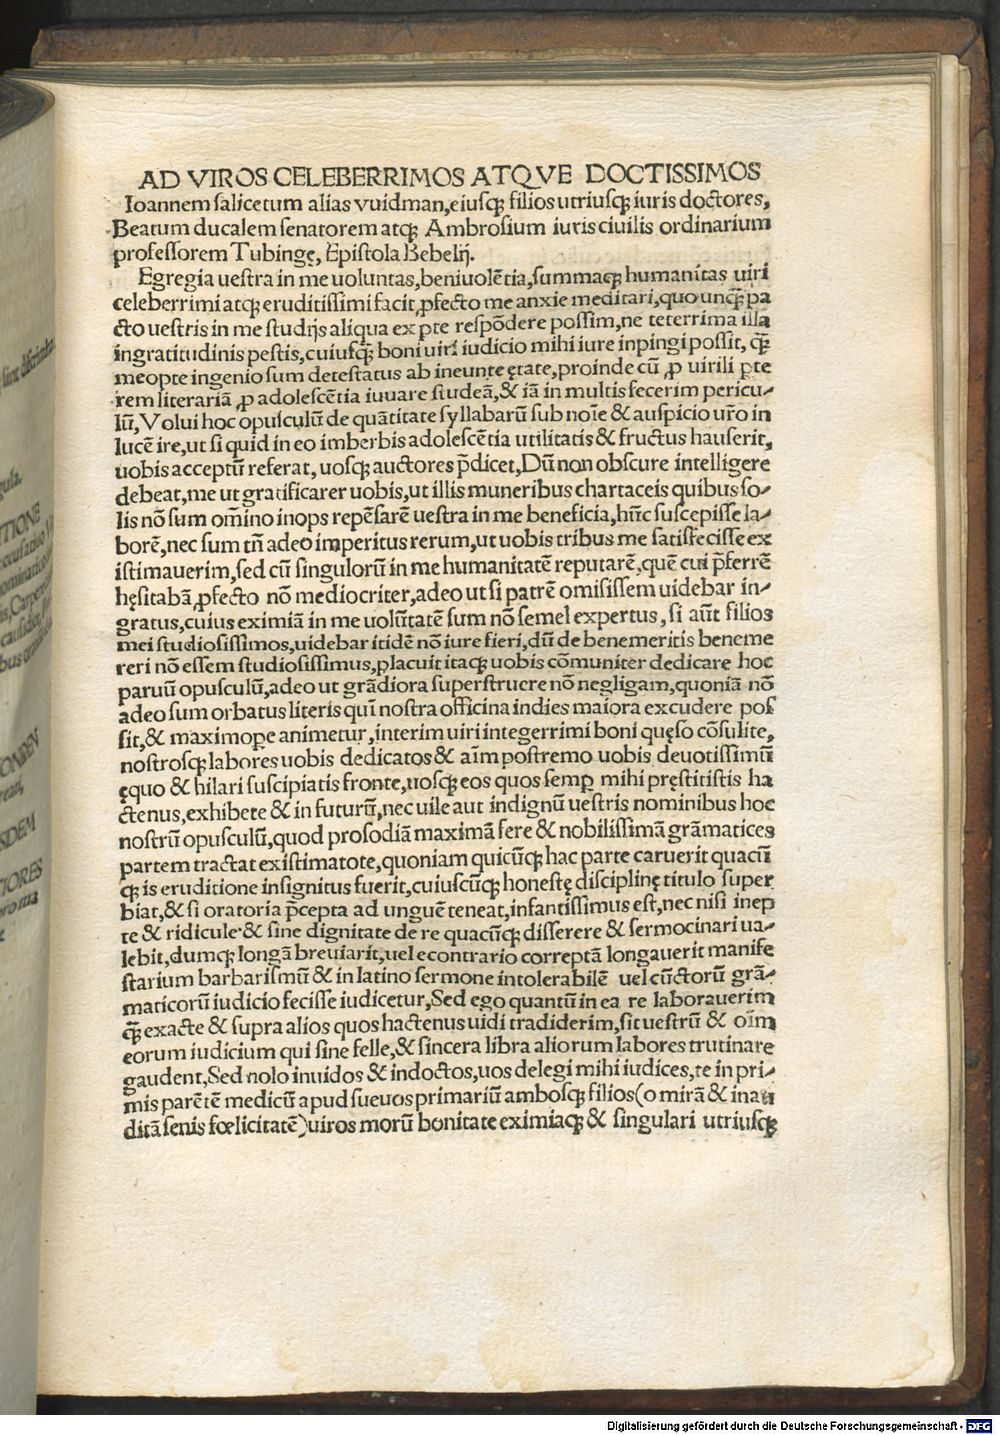 AD VIROS CELEBERRIMOS ATQVE DOCTISSIMOS
Ioannem ſalicetum alias vuidman,eiuſqꝫ filios utriuſqꝫ iuris doctores,
Beatum ducalem ſenatorem atqꝫ Ambroſium iuris ciuilis ordinarium
profeſſorem Tubingę, Epiſtola Bebelij.
Egregia ueſtra in me uoluntas,beniuolẽtia,ſummaqꝫ humanitas uiri
celeberrimi atqꝫ eruditiſſimi facit,ꝓfecto me anxie meditari,quo unqꝫ̃ pa
cto ueſtris in me ſtudijs aliqua ex pte reſpõdere poſſim,ne teterrima illa
ingratitudinis peſtis,cuiuſqꝫ̃ boni uiri iudicio mihi iure inpingi poſſit, qꝫ̃
meopte ingenio ſum deteſtatus ab ineunte ętate,proinde cũ ꝓ uirili ꝑte
rem literariã ꝓ adoleſcẽtia iuuare ſtudeã,& iã in multis fecerim pericu-
lũ,Volui hoc opuſculũ de quãtitate ſyllabarũ ſub noĩe & auſpicio ur̃o in
lucẽ ire,ut ſi quid in eo imberbis adoleſcẽtia utilitatis & fructus hauſerit,
uobis acceptũ referat, uoſqꝫ auctores p̃dicet,Dũ non obſcure intelligere
debeat,me ut gratificarer uobis,ut illis muneribus chartaceis quibus ſo-
lis nõ ſum om̃ino inops repẽſarẽ ueſtra in me beneficia,hũc ſuſcepiſſe la-
borẽ,nec ſum tñ adeo imperitus rerum,ut uobis tribus me ſatiſfeciſſe ex
iſtimauerim,ſed cũ ſingulorũ in me humanitatẽ reputarẽ,quẽ cui p̃ferrẽ
hęſitabã,ꝓfecto nõ mediocriter,adeo ut ſi patrẽ omiſiſſem uidebar in-
gratus,cuius eximiã in me uolũtatẽ ſum nõ ſemel expertus, ſi aũt filios
mei ſtudioſiſſimos,uidebar itidẽ nõ iure fieri,dũ de benemeritis beneme
reri nõ eſſem ſtudioſiſſimus,placuit itaqꝫ uobis cõmuniter dedicare hoc
paruũ opuſculũ,adeo ut grãdiora ſuperſtruere nõ negligam,quoniã nõ
adeo ſum orbatus literis quĩ noſtra officina indies maiora excudere poſ
ſit,& maximoꝑe animetur,interim uiri integerrimi boni quęſo cõſulite,
noſtroſqꝫ labores uobis dedicatos & aĩm poſtremo uobis deuotiſſimũ
ęquo & hilari ſuſcipiatis fronte,uoſqꝫ eos quos ſemꝑ mihi pręſtitiſtis ha
ctenus,exhibete & in futurũ,nec uile aut indignũ ueſtris nominibus hoc
noſtrũ opuſculũ,quod proſodiã maximã fere & nobiliſſimã grãmatices
partem tractat exiſtimatote,quoniam quicũqꝫ hac parte caruerit quacũ
qꝫ is eruditione inſignitus fuerit,cuiuſcũqꝫ honeſtę diſciplinę titulo ſuper
biat,& ſi oratoria p̃cepta ad unguẽ teneat,infantiſſimus eſt,nec niſi inep
te & ridicule·& ſine dignitate de re quacũqꝫ diſſerere & ſermocinari ua-
lebit,dumqꝫ longã breuiarit,uel econtrario correptã longauerit manife
ſtarium barbariſmũ & in latino ſermone intolerabilẽ uel cũctorũ grã-
maticorũ iudicio feciſſe iudicetur,Sed ego quantũ in ea re laborauerim
qꝫ̃ exacte & ſupra alios quos hactenus uidi tradiderim,ſit ueſtrũ & oĩm
eorum iudicium qui ſine felle,& ſincera libra aliorum labores trutinare
gaudent,Sed nolo inuidos & indoctos,uos delegi mihi iudices,te in pri-
mis parẽtẽ medicũ apud ſueuos primariũ amboſqꝫ filios(o mirã & inau
ditã ſenis fœlicitatẽ)uiros morũ bonitate eximiaqꝫ & ſingulari utriuſqꝫ
gula.
Digitalisierung gefördert durch die Deutsche Forschungsgemeinschaft - DFG